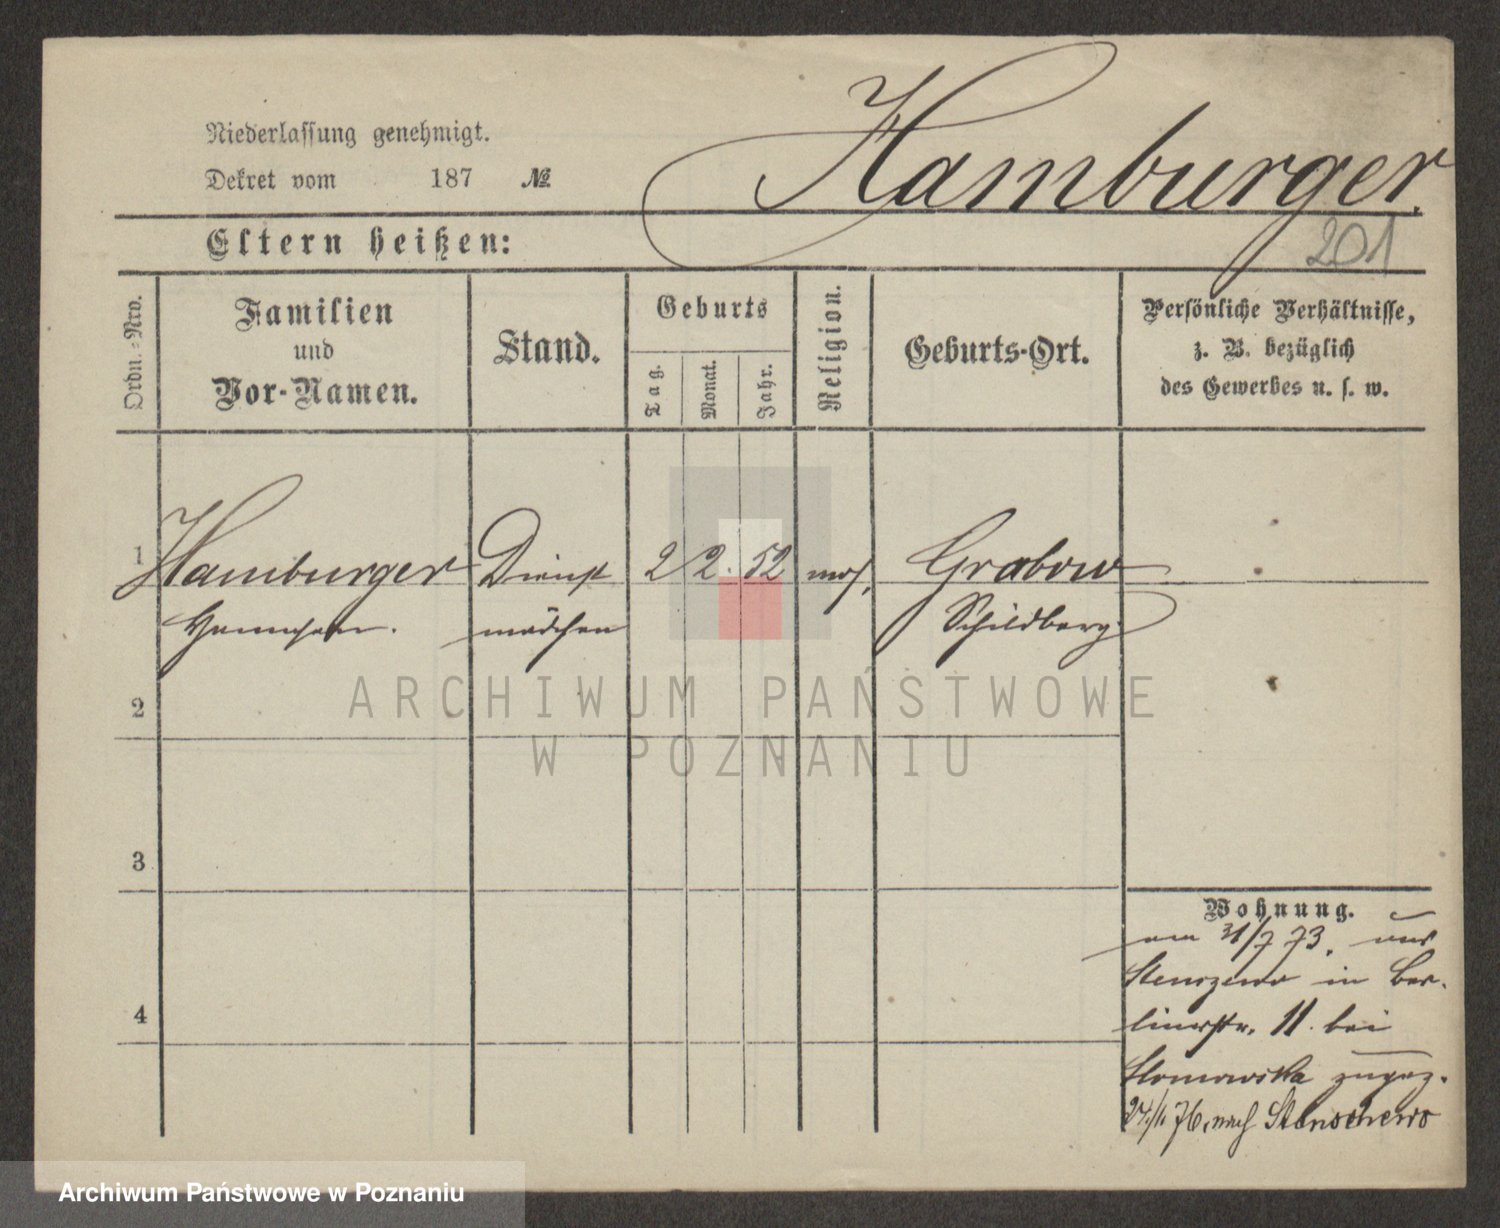 Niederlassung genehmigt.
Hamburger.
Dekret vom 187 №
Eltern heißen:
201
Ordn.-Nro.
Familien
und
Vor-Namen.
Stand.
Geburts
Tag.
Monat.
Jahr.
Religion.
Geburts-Ort.
Persönliche Verhältnisse,
z. B. bezüglich
des Gewerbes u. s. w.
1 Hamburger Dienst 2 2. 52 mos. Grabow
mädchen Schildberg
2
ARCHIWUM PAŃSTWOWE
W POZNANIU
3
Wohnung.
am 31/7 73. aus
Stenszewo in Ber-
4
linerstr. 11. bei
zugez.
24/11 76. nach Stenschewo
Archiwum Państwowe w Poznaniu